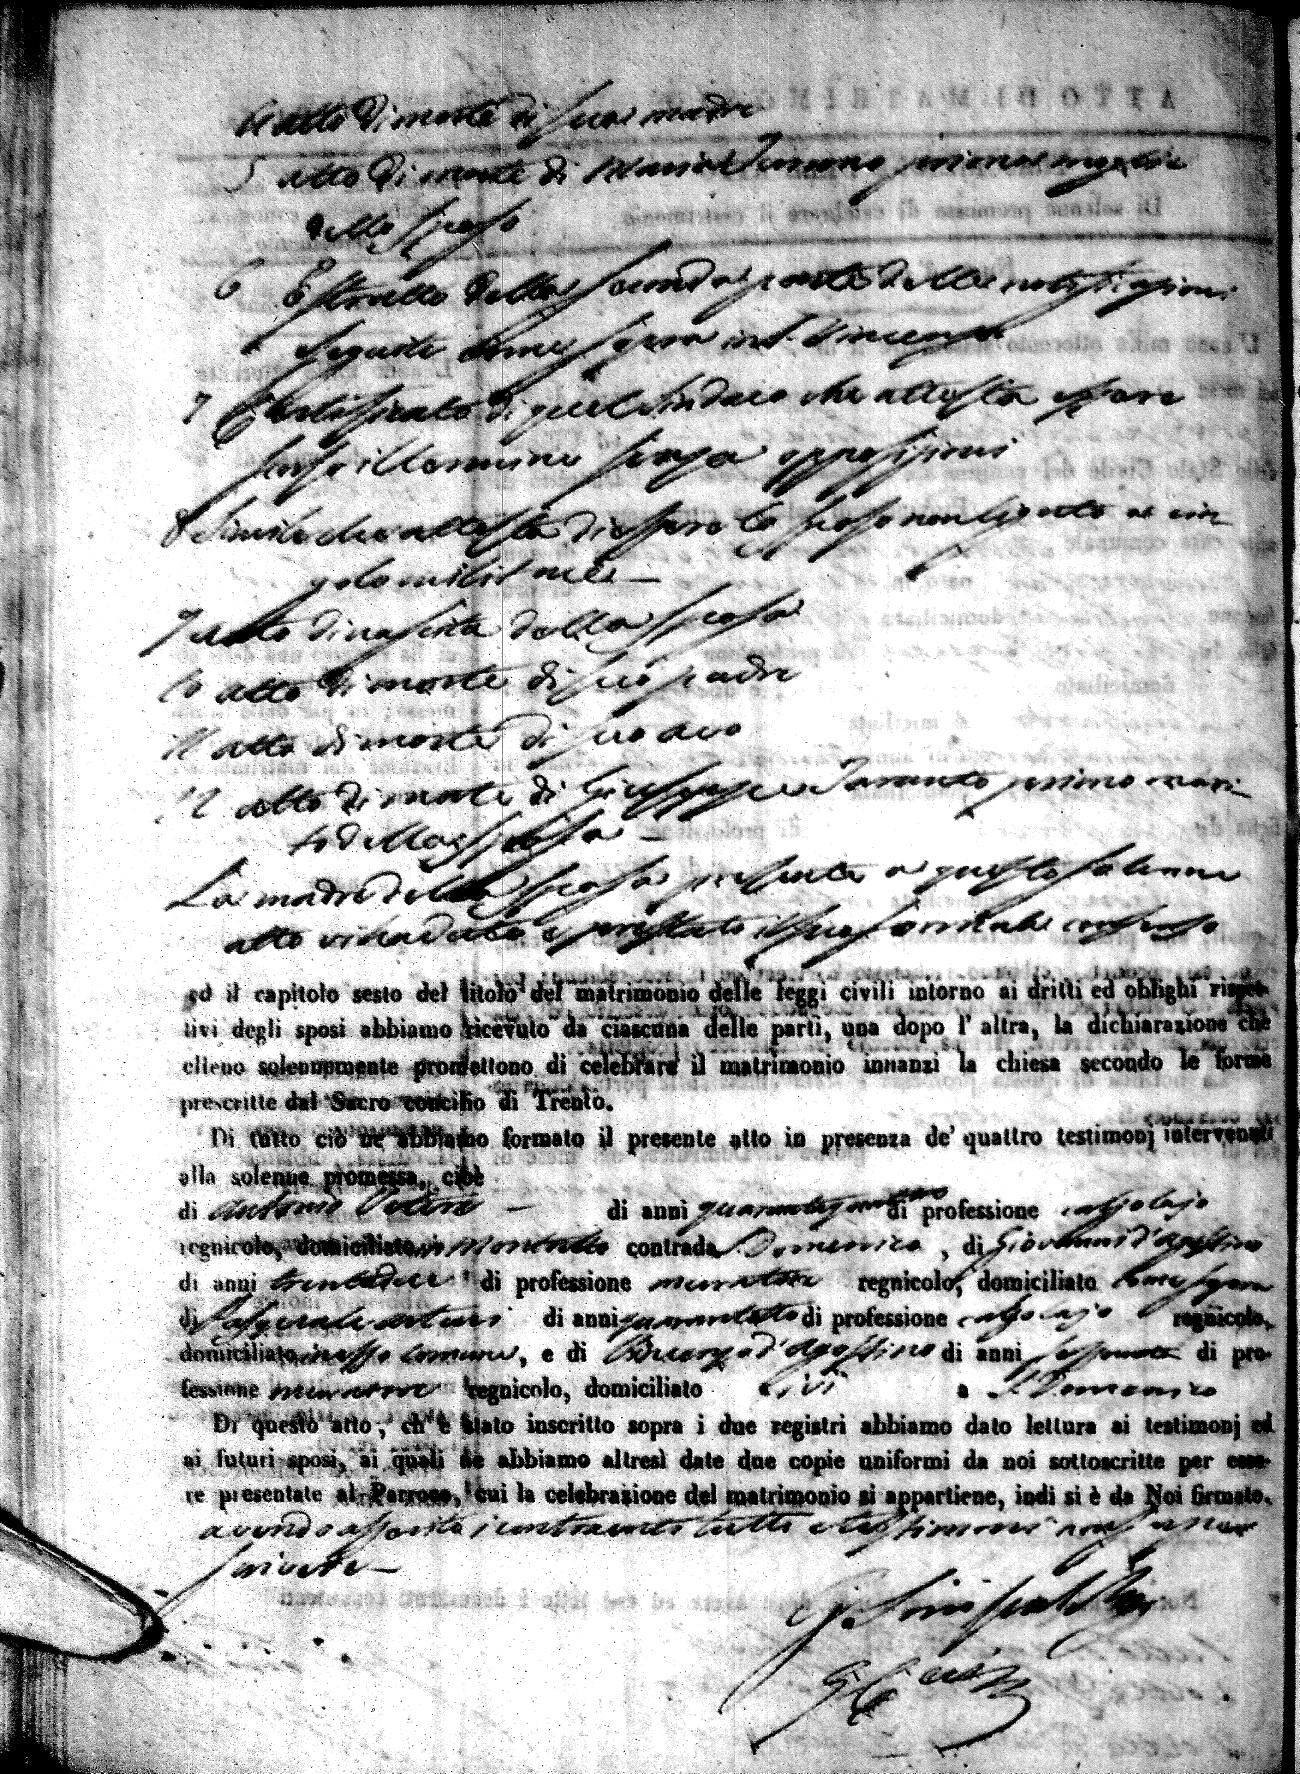 4 atto di morte di sua madre
5 atto di morte di Maria prima moglie
dello sposo
6 Estratto della seconda parte delle notificazioni
seguite in S. Vincenzo
7 Certificato di quel Sindaco che attesta essere
scorso il termine senza opposizioni
8 Simile che attesta di essere lo sposo non soggetto a vin
golo militare —
9 atto di nascita della sposa
10 atto di morte di suo padre
11 atto di morte di suo avo
12 atto di morte di Giuseppe Taranto primo mari
to della sposa —
La madre della sposa presente a questo solenne
atto vi ha dato e prestato il suo consenso
ed il capitolo sesto del titolo del matrimonio delle leggi civili intorno ai dritti ed oblighi rispet-
tivi degli sposi abbiamo ricevuto da ciascuna delle parti, una dopo l' altra, la dichiarazione che
elleno solennemente promettono di celebrare il matrimonio innanzi la chiesa secondo le forme
prescritte dal Sacro concilio di Trento.
Di tutto ciò ne abbiamo formato il presente atto in presenza de' quattro testimonj intervenuti
alla solenne promessa, cioè
di Antonio — di anni di professione calzolajo
regnicolo, domiciliato in Montalto contrada S. Domenico, di Giovanni d'Agostino
di anni di professione muratore regnicolo, domiciliato
di Pasquale Arturi di anni quarantotto di professione calzolajo regnicolo,
domiciliato in esso comune, e di d'Agostino di anni sessanta di pro-
fessione muratore regnicolo, domiciliato ivi a S. Domenico
Di questo atto, ch' è stato inscritto sopra i due registri abbiamo dato lettura ai testimonj ed
ai futuri sposi, ai quali ne abbiamo altresì date due copie uniformi da noi sottoscritte per esse-
re presentate al Parroco, cui la celebrazione del matrimonio si appartiene, indi si è da Noi firmato.
avendo asserito i contraenti tutti e testimoni non saper
scrivere —